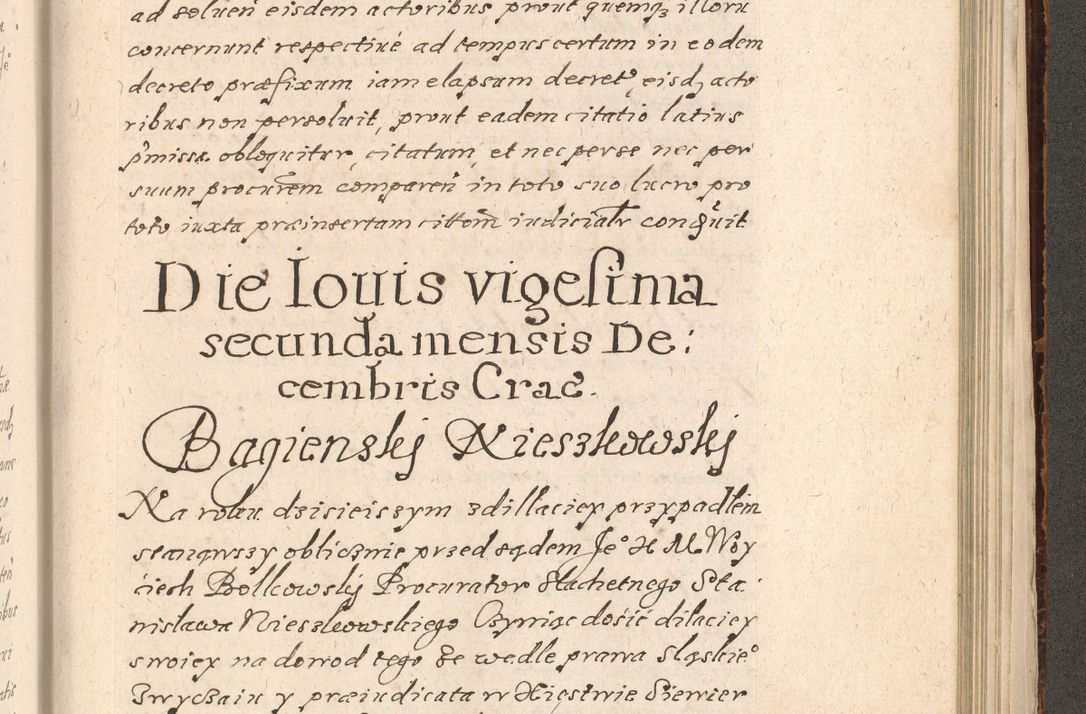 ad soluen̄ eisdem actoribus prout quemqʒ illoru
concernunt respectiué ad tempus certum in eodem
decreto præfixum iam elapsum decret, eisdʒ acto
ribus non persoluit, prout eadem citatio latius
p̄missa obloquitur, citatum, et nec per se nec per
suum procurem̄ comparen̄ in toto suo lucro pro
toto iuxta præinsertam citto͞m iudicialr̄ conqͥuit
Die Iouis vigesima
secunda mensis De:
cembris Crac.
Bagienskij Nieszkowskij
Na roku dzisieiszym z dillaciey przypadłem
stanąwszy oblicznie przed sądem Je° X M. Woy
ciech Bolkowskij Procurator Slachetnego Sta:
nisława Nieszkowskiego Czyniąc dosić dilaciey
swoiey na dowod tego że wedle prawa sląskie°
Zwyczaiu y præiudicata w Xięstwie Siewier